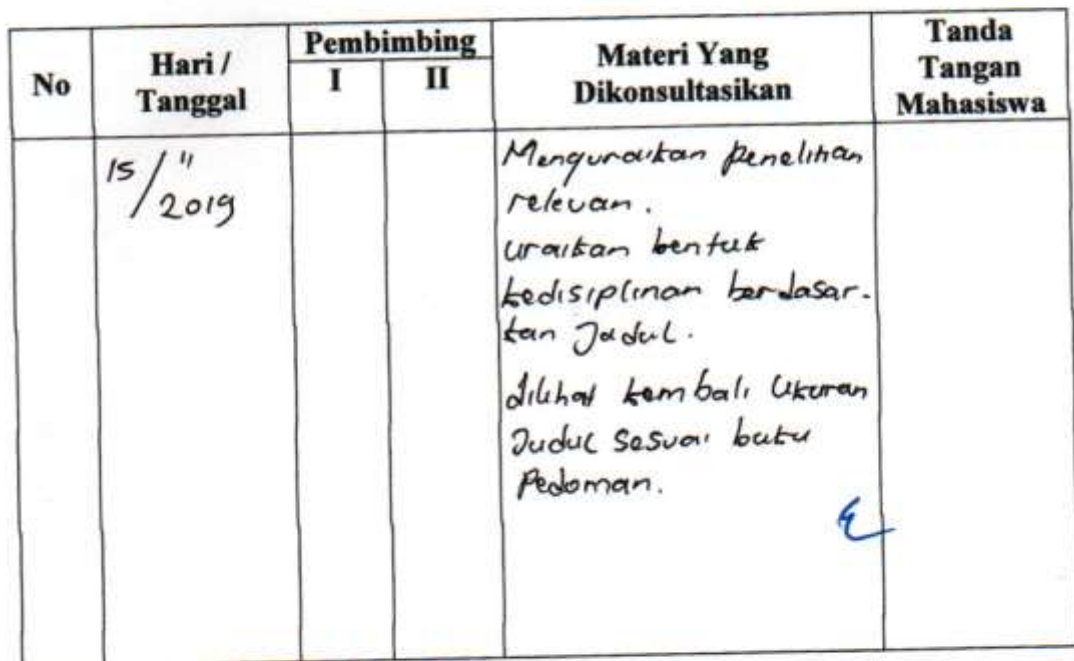 No
Hari /
Tanggal
Pembimbing
I
II
Materi Yang
Dikonsultasikan
Tanda
Tangan
Mahasiswa
15/11
2019
Menguraikan penelitian
relevan.
uraikan bentuk
kedisiplinan berdasar-
kan Judul.
dilihat kembali Ukuran
Judul sesuai buku
Pedoman.